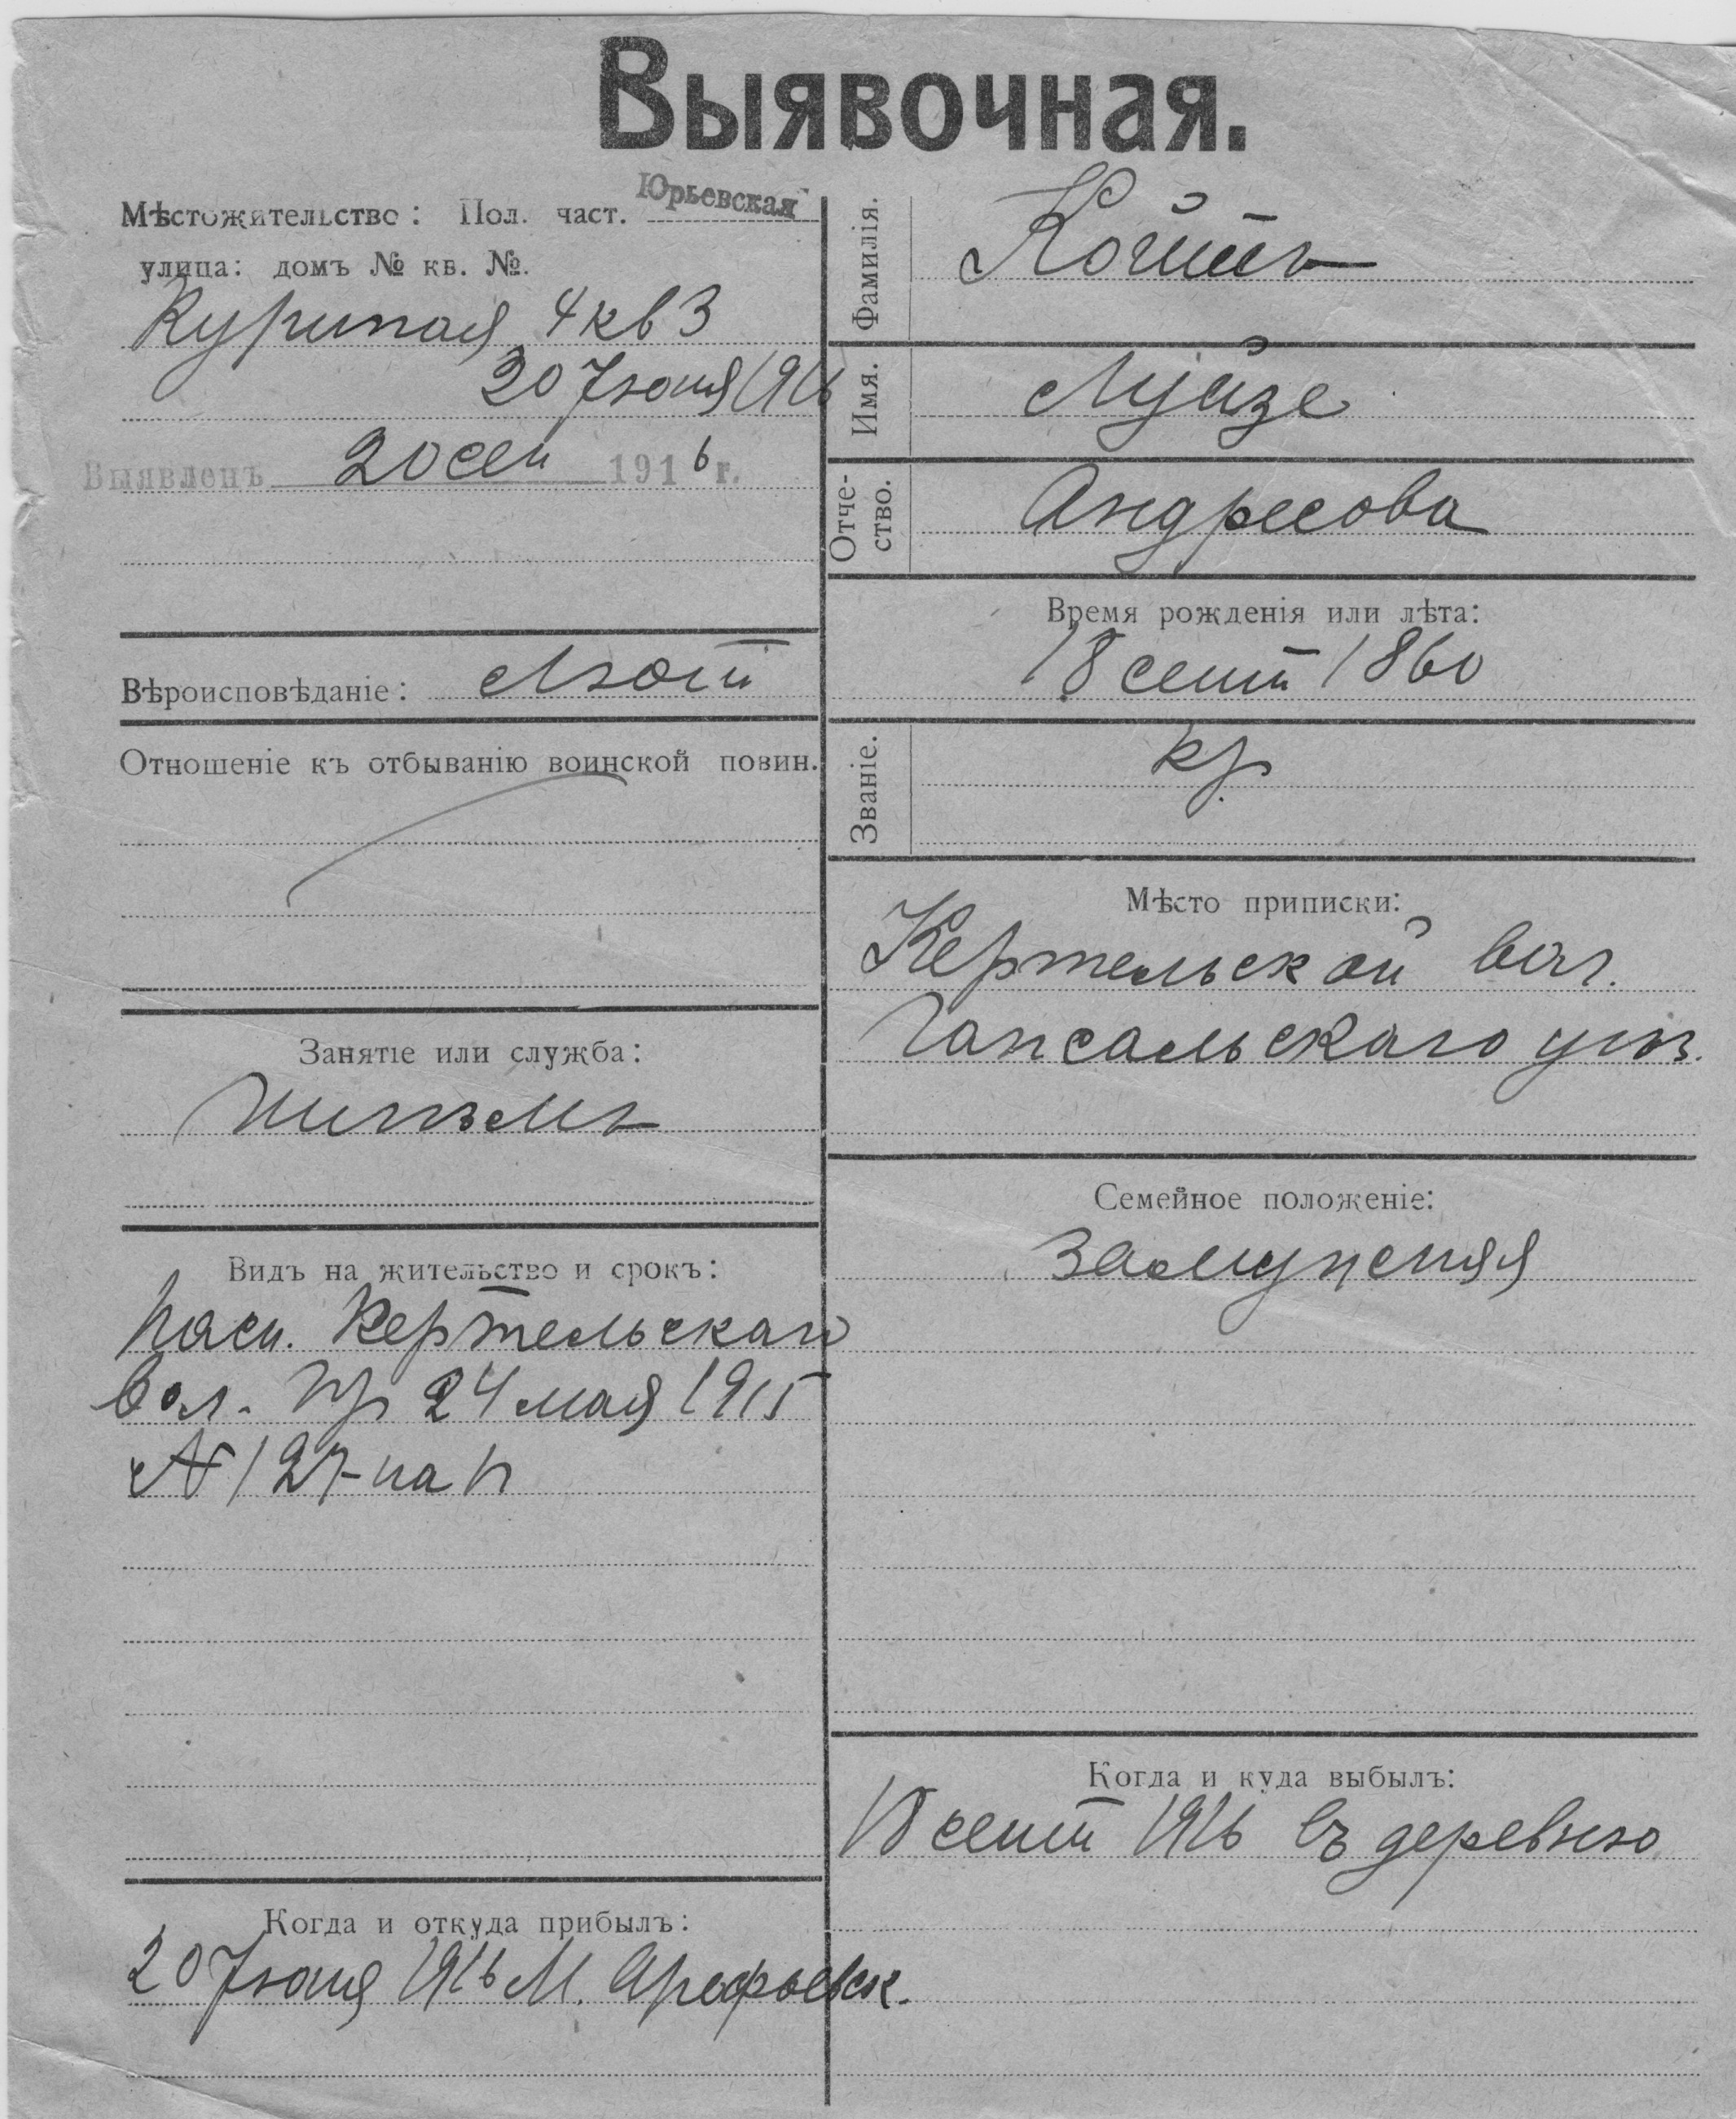 Выявочная.
Мѣстожительство: Пол. част. Юрьевская
улица: домъ № кв. №.
4 кв 3
20 Іюня 1916
Выявленъ 20 сен 1916 г.
Вѣроисповѣданіе: Лют
Отношеніе къ отбыванію воинской повин.
Занятіе или служба:
шитьемъ
Видъ на жительство и срокъ:
пасп. Кертельскаго
вол. пр 24 мая 1915
№ 127 на
Когда и откуда прибылъ:
20 Іюня 1916 М. Арефьевск.
Фамилія.
Имя. Луизе
Отчество. Андресова
Время рожденія или лѣта:
18 сент 1860
Званіе. кр.
Мѣсто приписки:
Кертельской вол.
Гапсальскаго уѣз.
Семейное положеніе:
замужняя
Когда и куда выбылъ:
сент 1916 въ деревню